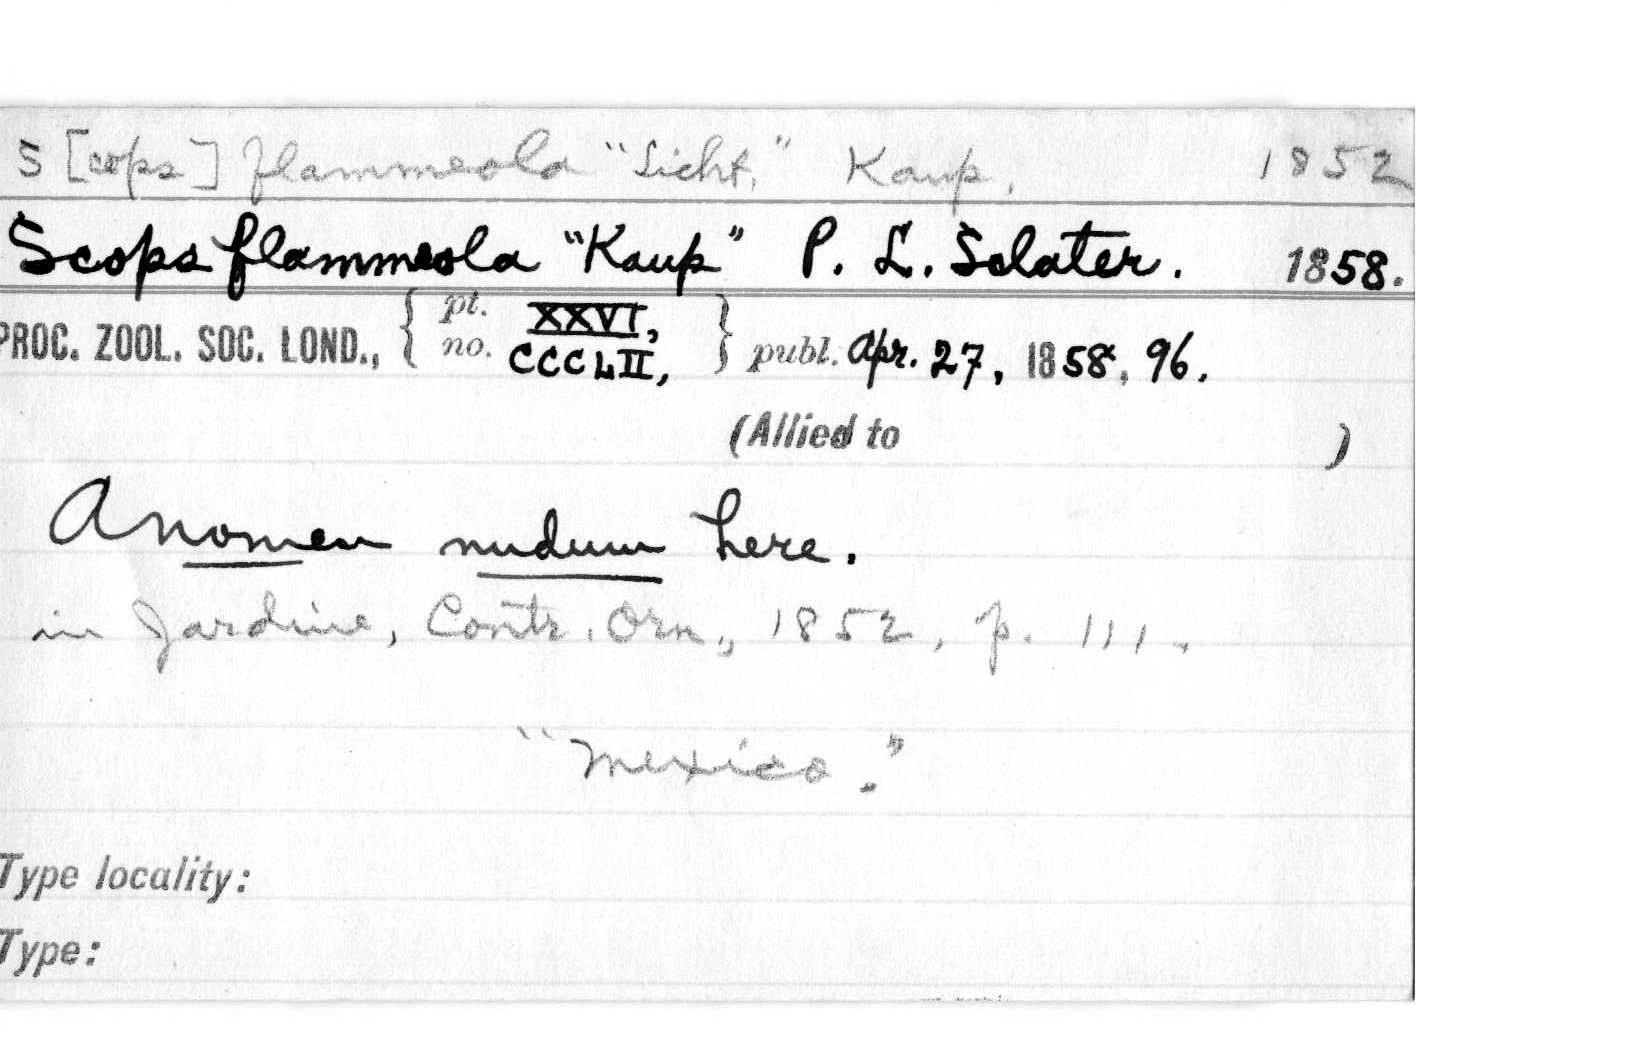 S [cops] flammeola "Licht," Kaup. 1852
Scops flammeola "Kaup" P. L. Sclater. 1858.
PROC. ZOOL. SOC. LOND., { pt. XXVI, no. CCCLII, } publ. Apr. 27, 1858, 96.
(Allied to )
A nomen nudum here.
in Jardine, Contr. Orn., 1852, p. 111.
"Mexico."
Type locality:
Type: